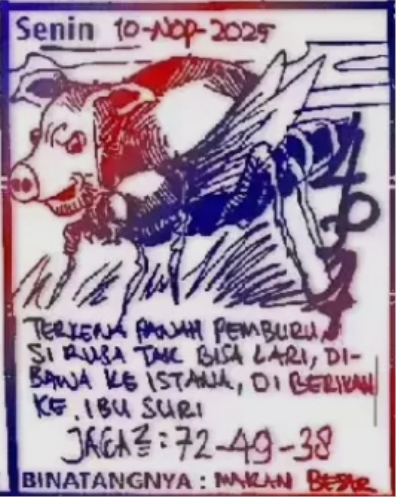 Senin 10-NOP-2025
TERKENA PANAH PEMBURU,
SI RUSA TAK BISA LARI, DI-
BAWA KE ISTANA, DI BERIKAN
KE. IBU SURI
JAGA2=:72-49-38
BINATANGNYA: MAKAN BESAR